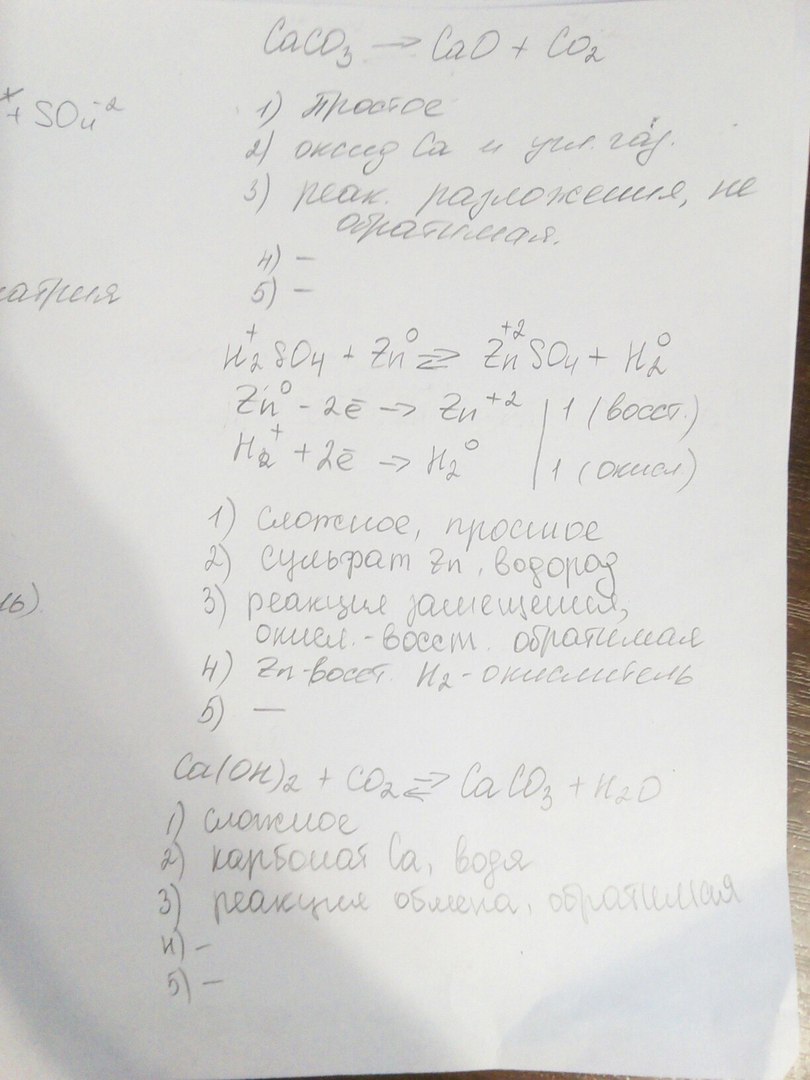 CaCO₃ → CaO + CO₂
+ SO₄⁻²
1) Простое
2) оксид Ca и угл. газ.
3) реак. разложения, не
обратимая.
4) –
5) –
атрия
H₂⁺SO₄ + Zn⁰ ⇄ Zn⁺²SO₄ + H₂⁰
Zn⁰ – 2ē → Zn⁺² | 1 (восст.)
H₂⁺ + 2ē → H₂⁰ | 1 (окисл.)
1) сложное, простое
2) сульфат Zn, водород
3) реакция замещения,
окисл.-восст. обратимая
4) Zn-восст. H₂-окислитель
5) —
ль)
Ca(OH)₂ + CO₂ ⇄ CaCO₃ + H₂O
1) сложное
2) карбонат Ca, водя
3) реакция обмена, обратимая
4) -
5) –